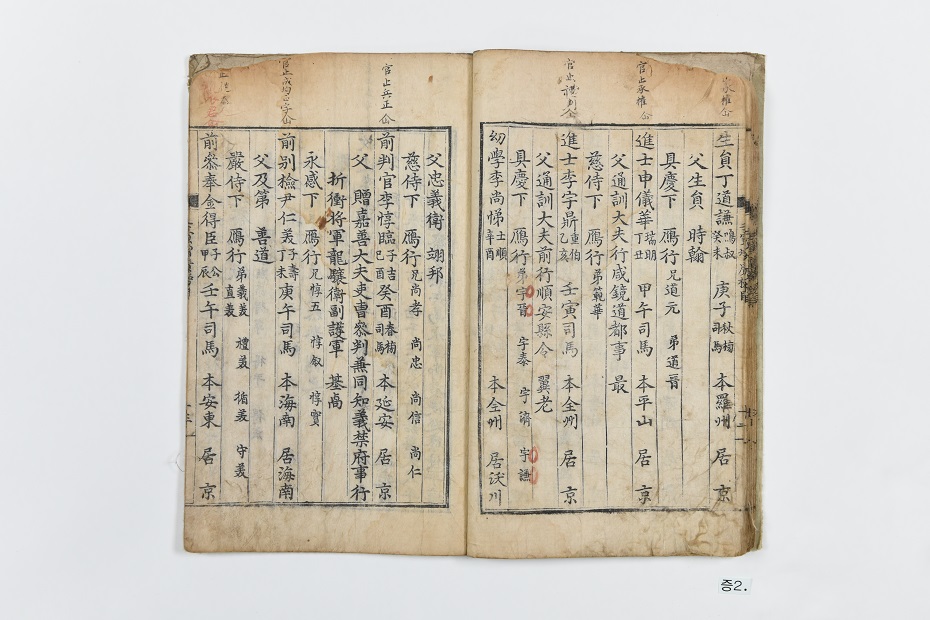 生員丁道謙鳴叔癸未 庚子秋榜司馬 本羅州 居京
父生員 時翰
具慶下 鴈行兄道元 弟道晋
官止承權公
進士申儀華瑞明丁丑 甲午司馬 本平山 居京
父通訓大夫行咸鏡道都事 最
慈侍下 鴈行弟範華
進士李宇鼎重伯乙亥 壬寅司馬 本全州 居京
父通訓大夫前行順安縣令 翼老
具慶下 鴈行弟宇晋 宇泰 宇濟 宇謙
幼學李尚悌士順辛酉 本全州 居沃川
父忠義衛 翊邦
慈侍下 鴈行兄尚孝 尚忠 尚信 尚仁
官止兵正公
前判官李惇臨子吉己酉 癸酉春榜司馬 本延安 居京
父 贈嘉善大夫吏曹參判兼同知義禁府事行
折衝將軍龍驤衛副護軍 基卨
永感下 鴈行兄惇五 惇叙 惇實
前別檢尹仁美子壽丁未 庚午司馬 本海南 居海南
父及第 善道
嚴侍下 鴈行弟義美 禮美 循美 守美 直美
前參奉金得臣子公甲辰 壬午司馬 本安東 居京
증2.